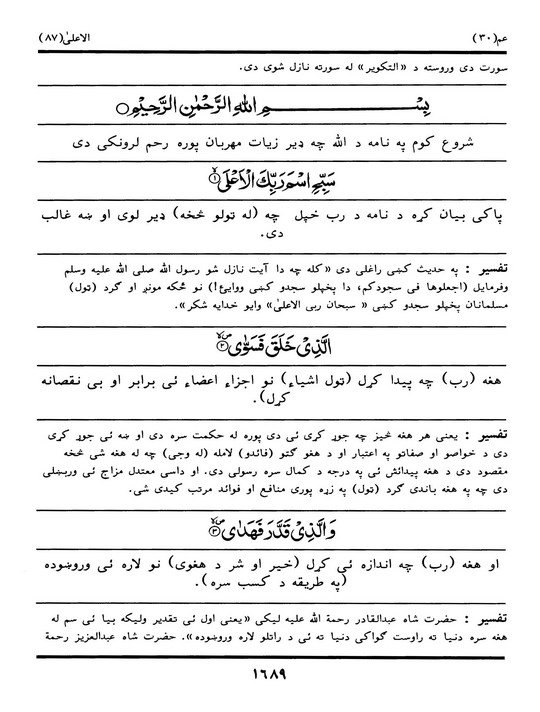 عم(۳۰) الاعلیٰ(۸۷)
سورت دی وروسته د «التکویر» له سورته نازل شوی دی.
بِسْـــــمِ اللّٰهِ الرَّحْمٰنِ الرَّحِيْمِ○
شروع کوم په نامه د الله چه ډیر زیات مهربان پوره رحم لرونکی دی
سَبِّحِ اسْمَ رَبِّكَ الْاَعْلَىۙ﴿۱﴾
پاکی بیان کړه د نامه د رب خپل چه (له ټولو څخه) ډیر لوی او ښه غالب
دی.
تفسیر : په حدیث کښی راغلی دی «کله چه دا آیت نازل شو رسول الله صلی الله علیه وسلم
وفرمایل (اجعلوها فی سجودکم، دا پخپلو سجدو کښی ووایئ!) نو ځکه مونږ او ګرد (ټول)
مسلمانان پخپلو سجدو کښی « سبحان ربی الاعلیٰ» وایو خدایه شکر».
الَّذِيْ خَلَقَ فَسَوّٰىۙ﴿۲﴾
هغه (رب) چه پیدا کړل (ټول اشیاء) نو اجزاء اعضاء ئی برابر او بی نقصانه
کړل).
تفسیر : یعنی هر هغه څیز چه جوړ کړی ئی دی پوره له حکمت سره دی او ښه ئی جوړ کړی
دی د خواصو او صفاتو په اعتبار او د هغو ګټو (فائدو) لامله (له وجی) چه له هغه شی څخه
مقصود دی د هغه پیدائش ئی په درجه د کمال سره رسولی دی. او داسی معتدل مزاج ئی وربښلی
دی چه په هغه باندی ګرد (ټول) په زړه پوری منافع او فوائد مرتب کیدی شی.
وَالَّذِيْ قَدَّرَ فَهَدٰىۙ﴿۳﴾
او هغه (رب) چه اندازه ئی کړل (خیر او شر د هغوی) نو لاره ئی وروښوده
(په طریقه د کسب سره).
تفسیر : حضرت شاه عبدالقادر رحمة الله علیه لیکی «یعنی اول ئی تقدیر ولیکه بیا ئی سم له
هغه سره دنیا ته راوست ګواکی دنیا ته ئی د راتلو لاره وروښوده». حضرت شاه عبدالعزیز رحمة
۱٦۸۹